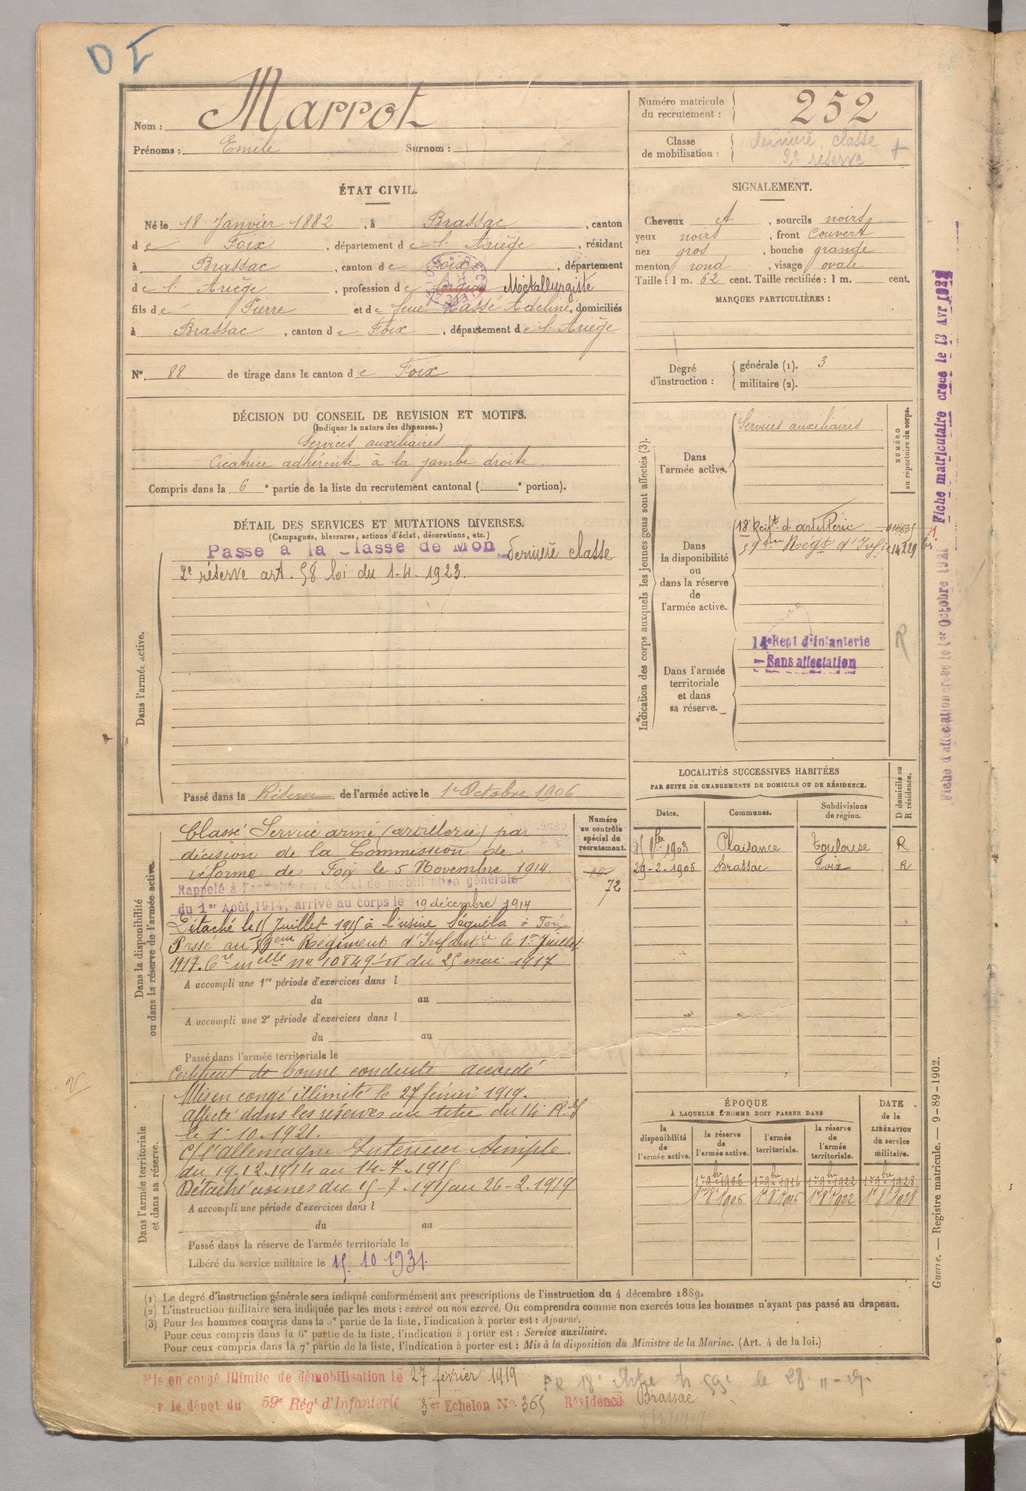 Nom : Marrot
Prénoms : Emile Surnom :
Numéro matricule du recrutement : 252
Classe de mobilisation : dernière classe
2e réserve
ÉTAT CIVIL.
Né le 18 Janvier 1882, à Brassac, canton
de Foix, département de l'Ariège, résidant
à Brassac, canton de Foix, département
de l'Ariège, profession de Métallurgiste
fils de Pierre et de feue Massé Adeline, domiciliés
à Brassac, canton de Foix, département de l'Ariège
N° 88 de tirage dans le canton de Foix
SIGNALEMENT.
Cheveux et, sourcils noirs
yeux noirs, front couvert
nez gros, bouche grande
menton rond, visage ovale
Taille : 1 m. 62 cent. Taille rectifiée : 1 m. cent.
MARQUES PARTICULIÈRES :
Degré d'instruction : générale (1). 3
militaire (2).
DÉCISION DU CONSEIL DE REVISION ET MOTIFS.
(Indiquer la nature des dispenses.)
Services auxiliaires
Cicatrice adhérente à la jambe droite
Compris dans la 6e partie de la liste du recrutement cantonal ( e portion).
DÉTAIL DES SERVICES ET MUTATIONS DIVERSES.
(Campagnes, blessures, actions d'éclat, décorations, etc.)
Passé à la Classe de Mob dernière classe
2e réserve art. 58 loi du 1-4-1923.
Dans l'armée active.
Passé dans la Réserve de l'armée active le 1er Octobre 1906
Indication des corps auxquels les jeunes gens sont affectés (3).
NUMÉRO au répertoire du corps.
Dans l'armée active. Services auxiliaires
Dans la disponibilité ou dans la réserve de l'armée active.
18e Regt d'artillerie
59eme Regt d'Infie
Dans l'armée territoriale et dans sa réserve.
14e Regt d'Infanterie
Sans affectation
R
Fiche matriculaire créée le 13 Avr
Fiche d'affectation créée le 1er Octobre 1921
LOCALITÉS SUCCESSIVES HABITÉES
PAR SUITE DE CHANGEMENTS DE DOMICILE OU DE RÉSIDENCE.
D domicile ou R résidence.
Dates. Communes. Subdivisions de région.
1903 Plaisance Toulouse R
29-2-1906 Brassac Foix R
Dans la disponibilité ou dans la réserve de l'armée active.
Numéro au contrôle spécial du recrutement.
72
Classé Service armé (artillerie) par
décision de la Commission de
réforme de Foix le 5 Novembre 1914.
Rappelé à l'activité par décret de mobilisation générale
du 1er Août 1914, arrivé au corps le 19 décembre 1914
Détaché le 15 Juillet 1915 à l'usine Séquéla à Foix
Passé au 59eme Régiment d'Infanterie le 1er Juillet
1917. Cre melle no 10849 du 25 mai 1917
A accompli une 1re période d'exercices dans l
du au
A accompli une 2e période d'exercices dans l
du au
Passé dans l'armée territoriale le
Certificat de bonne conduite accordé
Dans l'armée territoriale et dans sa réserve.
Mis en congé illimité le 27 février 1919.
affecté dans les réserves au titre du 14e R.I.
le 1-10-1921.
C/ l'allemagne Intérieur simple
du 19-12-1914 au 14-7-1915
Détaché usines du 15-7-1915 au 26-2-1919
A accompli une période d'exercices dans l
du au
Passé dans la réserve de l'armée territoriale le
Libéré du service militaire le 15 10 1931.
ÉPOQUE
À LAQUELLE L'HOMME DOIT PASSER DANS
DATE de la LIBÉRATION du service militaire.
la disponibilité de l'armée active. la réserve de l'armée active. l'armée territoriale. la réserve de l'armée territoriale.
Guerre. — Registre matricule. — 9-89-1902.
(1) Le degré d'instruction générale sera indiqué conformément aux prescriptions de l'instruction du 4 décembre 1889.
(2) L'instruction militaire sera indiquée par les mots : exercé ou non exercé. On comprendra comme non exercés tous les hommes n'ayant pas passé au drapeau.
(3) Pour les hommes compris dans la 5e partie de la liste, l'indication à porter est : Ajourné.
Pour ceux compris dans la 6e partie de la liste, l'indication à porter est : Service auxiliaire.
Pour ceux compris dans la 7e partie de la liste, l'indication à porter est : Mis à la disposition du Ministre de la Marine. (Art. 4 de la loi.)
Mis en congé illimité de démobilisation le 27 février 1919
le dépôt du 59e Régt d'Infanterie 3er Echelon No 365 Résidence Brassac